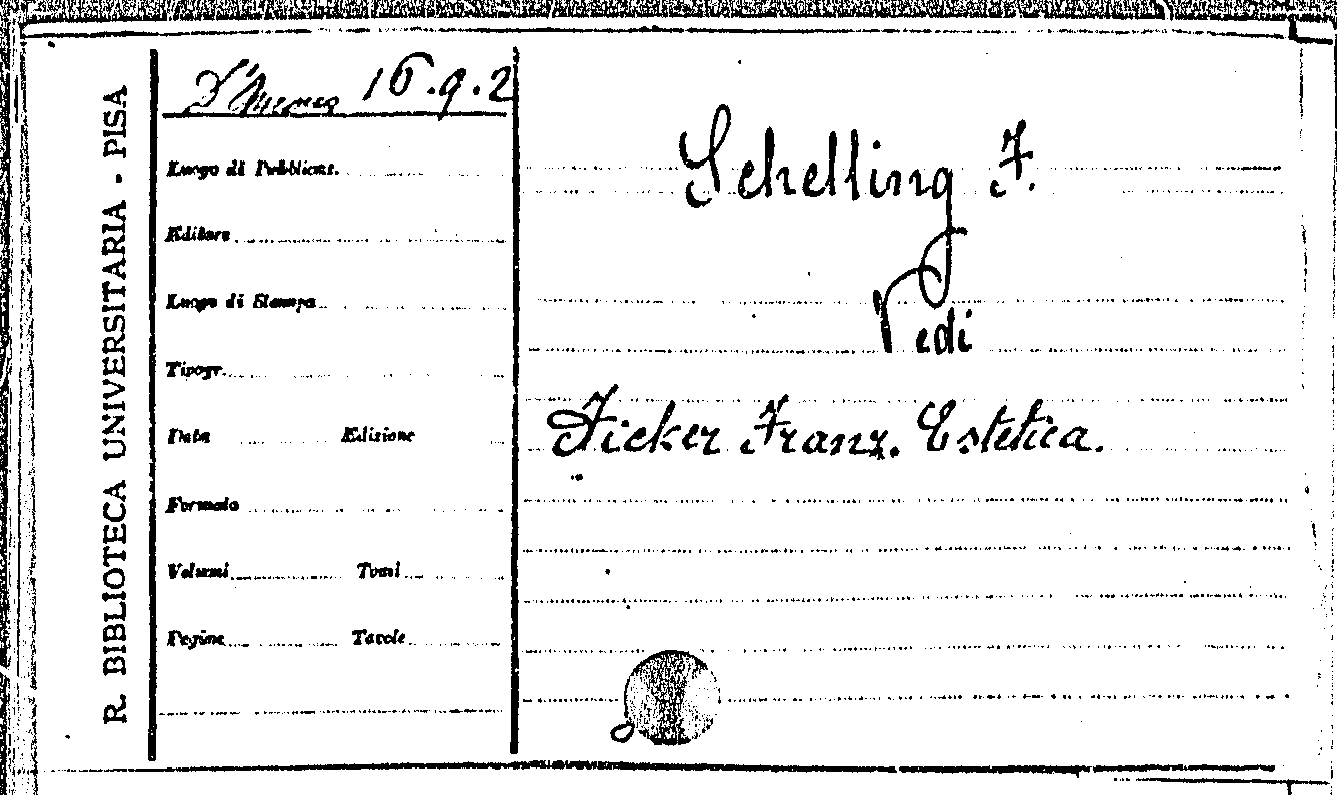 R. BIBLIOTECA UNIVERSITARIA - PISA
16.9.2
Luogo di Pubblicaz.
Editore
Luogo di Stampa
Tipogr.
Data Edizione
Formato
Volumi Tomi
Pagine Tavole
Schelling F.
Vedi
Ficker Franz. Estetica.